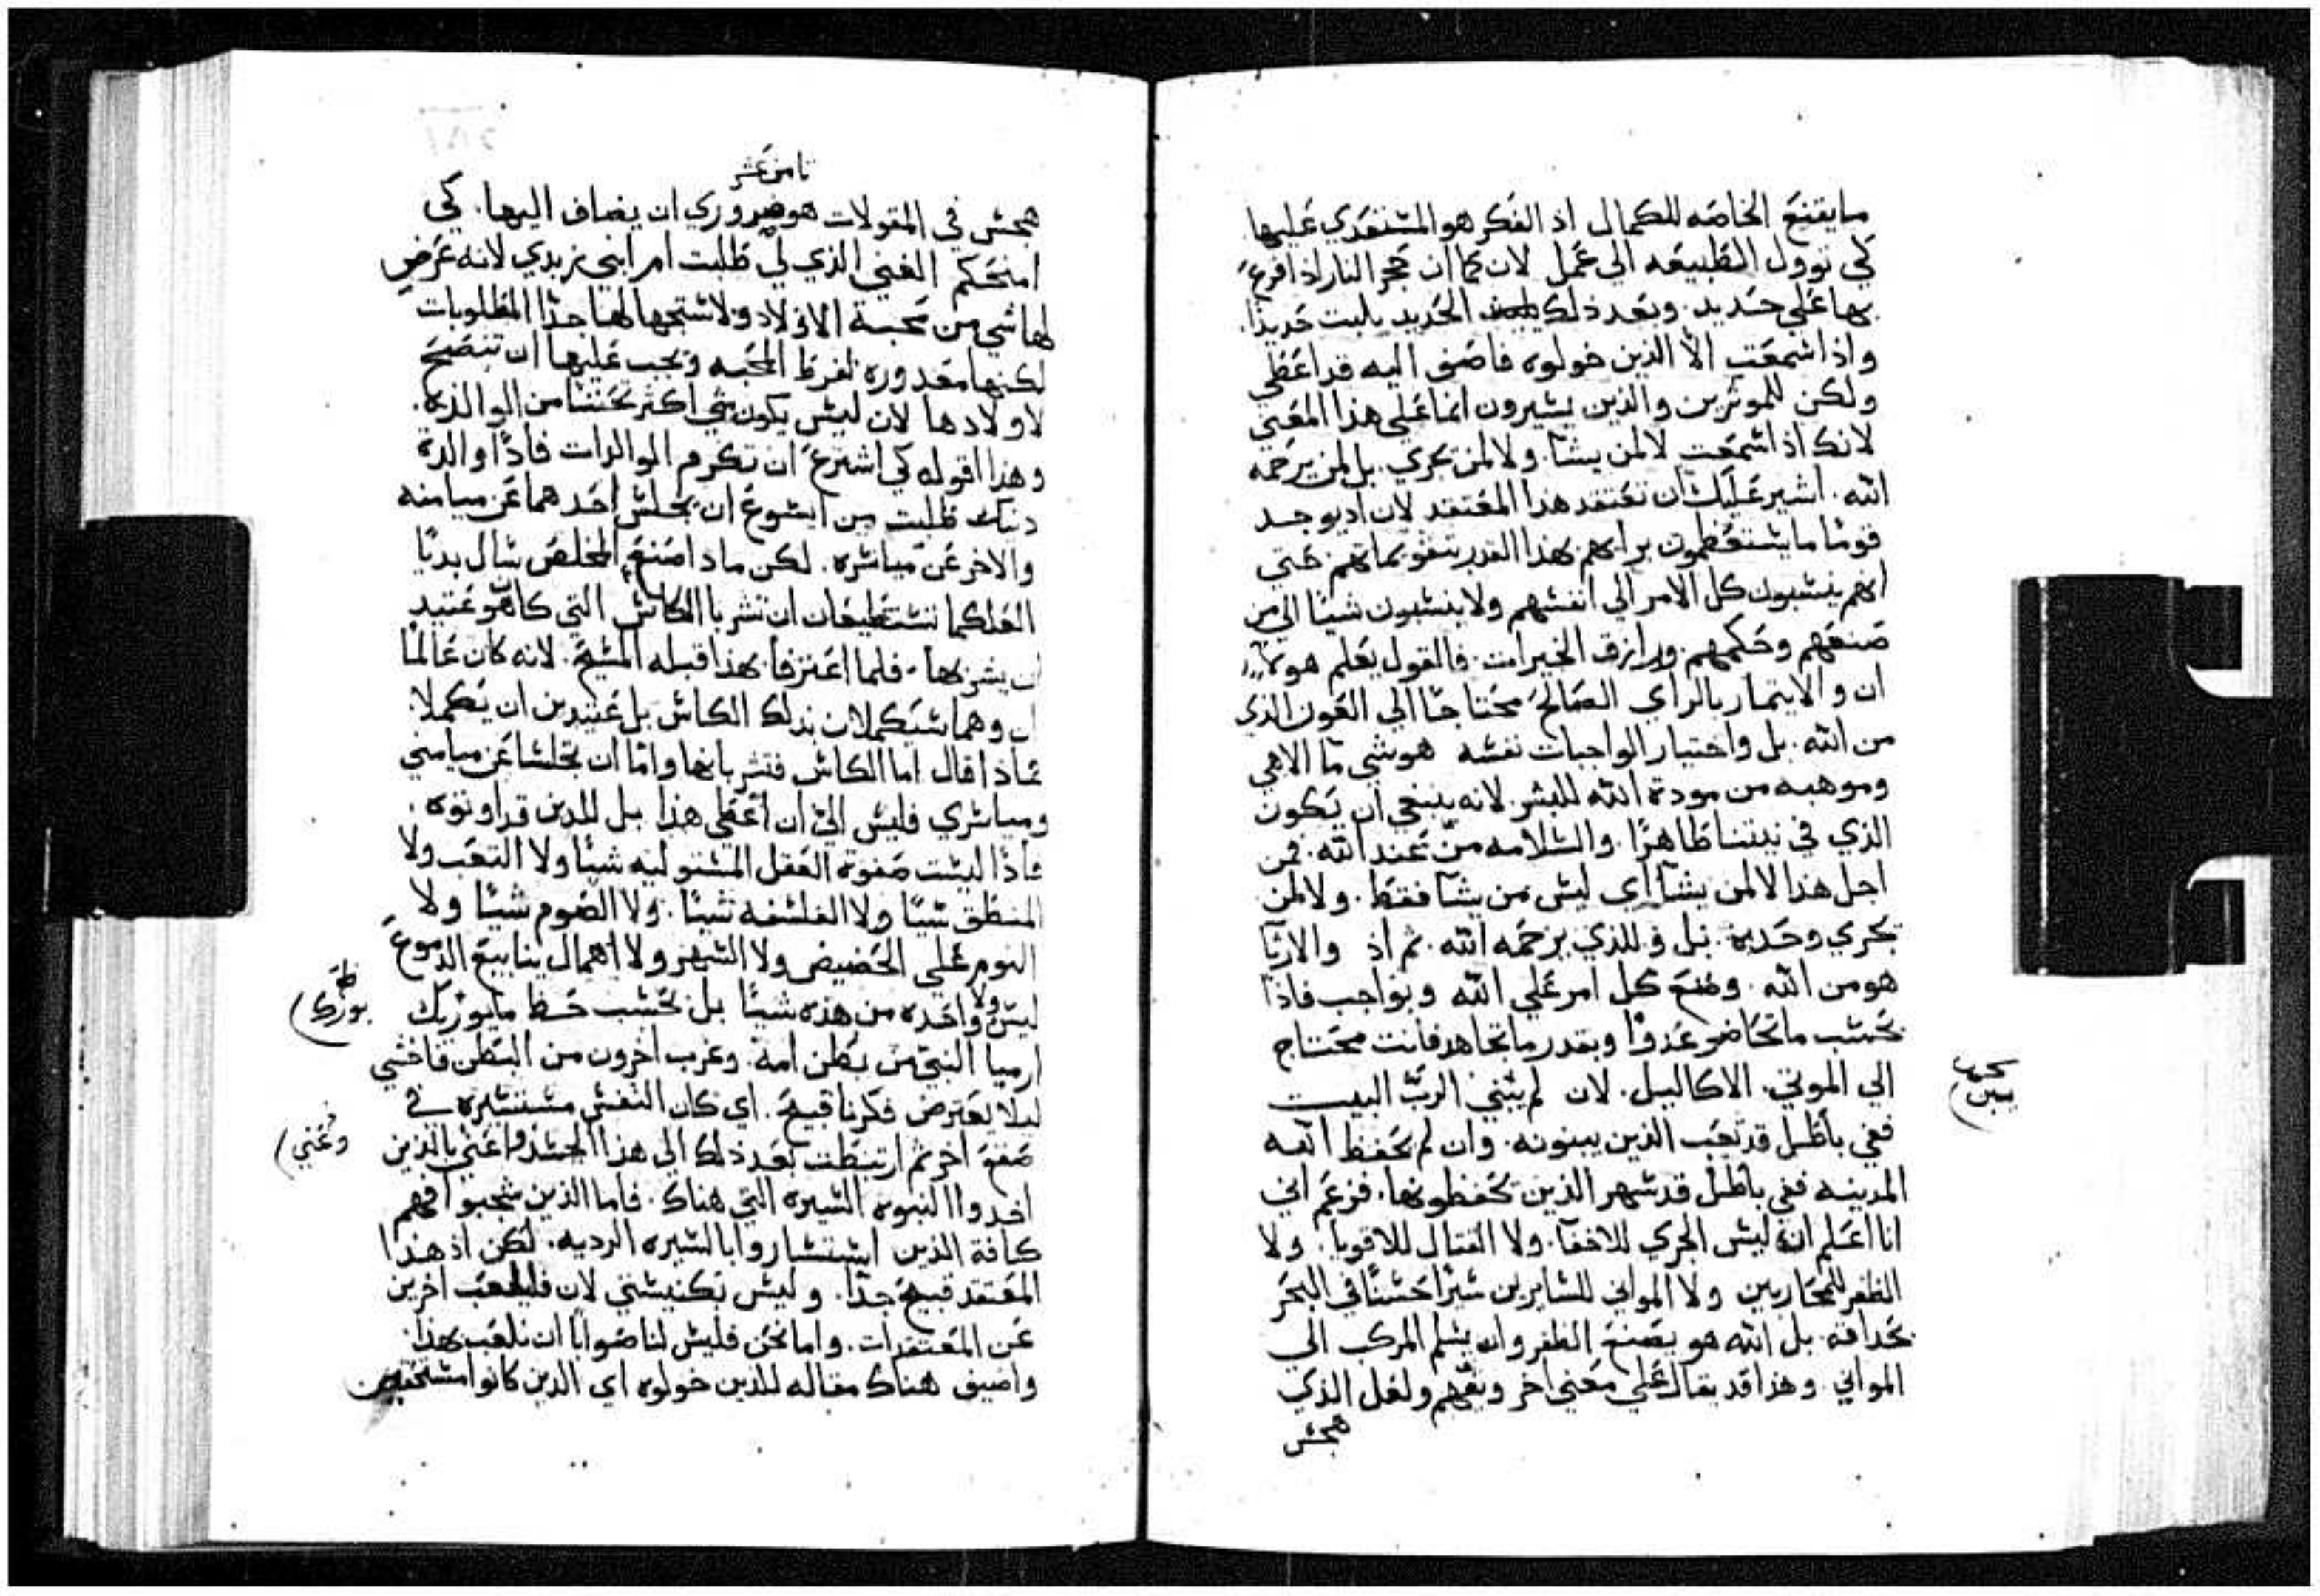 ما يقنع الخاصه للكمال اذ الفكر هو المستعدي عليها
كي توول الطبيعه الى عمل لان كما ان حجر النار اذا اقرع
بها على حديد. وبعد ذلك الحديد يلبت حديدًا.
واذا سمعت الا الذين خولوه فاضف اليه قد اعطي
ولكن للموثرين والذين يشيرون انما على هذا المعني
لانك اذ سمعت لا لمن يشا. ولا لمن يجري. بل لمن يرحمه
الله. اشير عليك ان تعتقد هذا المعتقد لان اد يوجد
قومًا ما يستعظمون برايهم بهذا القدر حتي
انهم ينسبون كل الامر الي انفسهم ولا ينسبون شيئا الي من
صنعهم وحكمهم ورازق الخيرات. فالقول يعلم هولاء
ان والايتمار بالراي الصالح محتاجًا الي العون الذي
من الله. بل واختيار الواجبات نفسه هو شي ما الاهي
وموهبه من مودة الله للبشر لانه ينبغي ان يكون
الذي في نيتنا ظاهرًا. والسلامه من عند الله. فمن
اجل هذا لا لمن يشآ اي ليس من يشا فقط. ولا لمن
يجري وحديه. بل وللذي يرحمه الله. ثم اذ والارتآ
هو من الله. وضع كل امر علي الله وبواجب فاذًا
بحسب ما تحاضر عدوًا وبقدر ما تجاهد فانت محتاج
الي الموتي الاكاليل. لان لم يبني الرب البيت
ففي باطل قد تعب الذين يبنونه. وان لم يحفظ الله
المدينه ففي باطل قد سهر الذين يحفظونها. فزعم اني
انا اعلم ان ليس الجري للاخفآ. ولا القتال للاقويا. ولا
الظفر للمحاربين ولا المواني للسايرين سيرًا حسنًا في البحر
بحداقه. بل الله هو يصنع الظفر وان يسلم المركب الي
المواني. وهذا قد يقال علي معني اخر ويفهم ولعل الذي
هجس
ثامن عشر
هجس في المقولات هو ضروري ان يضاف اليها. كي
امنحكم الغني الذي لي طلبت امر ابني زبدي لانه عرض
لها شي من محبة الاولاد ولا سمجها لها جدًا المطلوبات
لكنها معدوره لفرط المحبه ويجب عليها ان تنصح
لاولادها لان ليس يكون شي اكثر تحننًا من الوالده.
وهذا اقوله كي اشرع ان تكرم الوالدات فاذًا والدة
دنيك طلبت من ايسوع ان يجلس احدهما عن ميامنه
والاخر عن مياسره. لكن ماد اصنع المخلص سال بديًا
العلكما تستطيعان ان تشربا الكاس التي كان هو عتيد
ان يشربها. فلما اعترفا بهذا قبله المسيح. لانه كان عالمًا
ان وهما سيكملان بذلك الكاس بل عتيدين ان يكملا.
فماذا قال اما الكاس فتشربانها واما ان تجلسا عن ميامني
ومياسري فليس اليّ ان اعطي هذا بل للذين قد اوتوه.
فاذا ليست صفوة العقل المستوليه شيئًا ولا التعب ولا
المنطق شيئًا ولا الفلسفه شيئًا. ولا الصوم شيئًا ولا
النوم علي الحضيض ولا السهر ولا اهمال ينابيع الدموع
ليس ولا واحده من هذه شيئًا بل بحسب حظ ما بورك
ارميا النبي من بطن امه. وغرب اخرون من البطن فاخشي
ليلا يعترض فكرنا قبيح. اي كان النفس مستسيره في
صقع اخر ثم ارتبطت بعد ذلك الي هذا الجسد واعني بالذين
اخدوا النبوه السيره التي هناك. فاما الذين شجبوا فهم
كافة الذين استساروا بالسيره الرديه. لكن اذ هذا
المعتقد قبيح جدًا. وليس بكنيسي لان فليلعب اخرين
عن المعتقدات. واما نحن فليس لنا صوابًا ان نلعب بهذا
واضيف هناك مقاله للذين خولوه اي الذين كانوا مستحقين
بورك
وغني